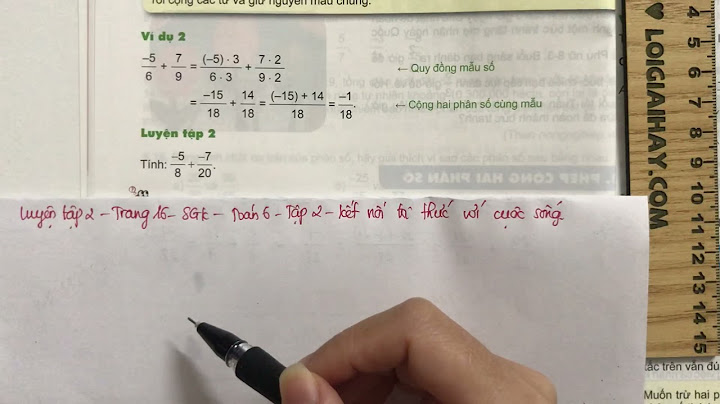 rồi cộng các tử và giữ nguyên mẫu chung.
Ví dụ 2
-5/6 + 7/9 = (–5) · 3/6 · 3 + 7 · 2/9 · 2
← Quy đồng mẫu số
= -15/18 + 14/18 = (–15) + 14/18 = -1/18.
← Cộng hai phân số cùng mẫu
Luyện tập 2
Tính: -5/8 + -7/20.
Luyện tập 2 – Trang 16 – SGK – Toán 6 – Tập 2 – kết nối tri thức với cuộc sống
LOIGIAIHAY.COM
4 5 6 7 8 9 10 11 12 13 14 15
tắc trên vẫn đú
Muốn trừ hai p